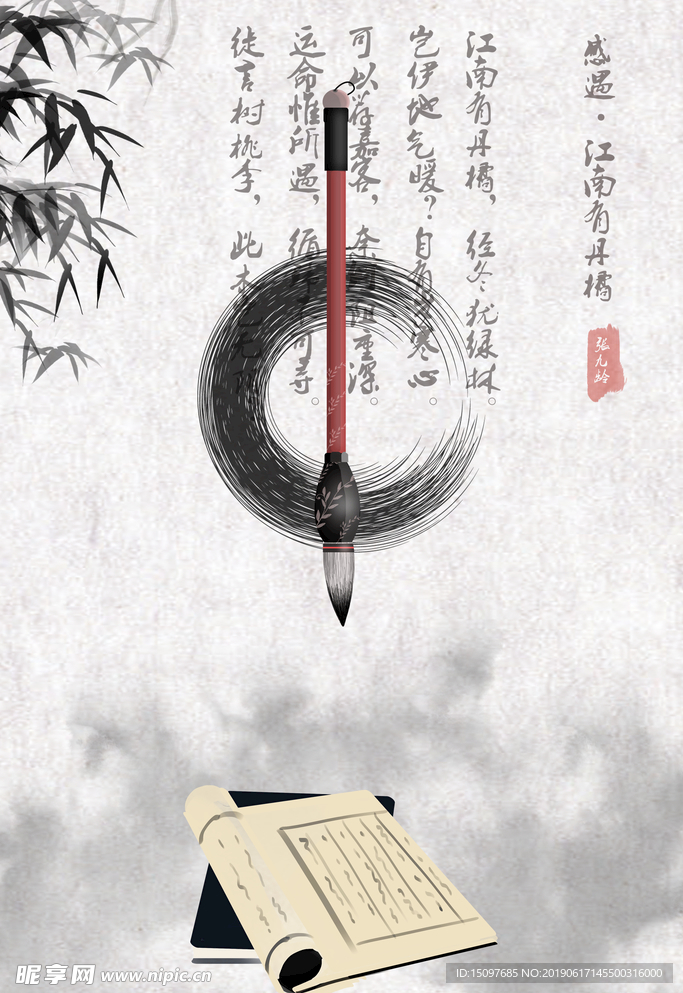 感遇·江南有丹橘
张九龄
江南有丹橘，经冬犹绿林。
岂伊地气暖？自有岁寒心。
可以荐嘉客，奈阻重深。
运命惟所遇，循可寻。
徒言树桃李，此木无阴
昵享网 www.nipic.cn
ID:15097685 NO:20190617145500316000